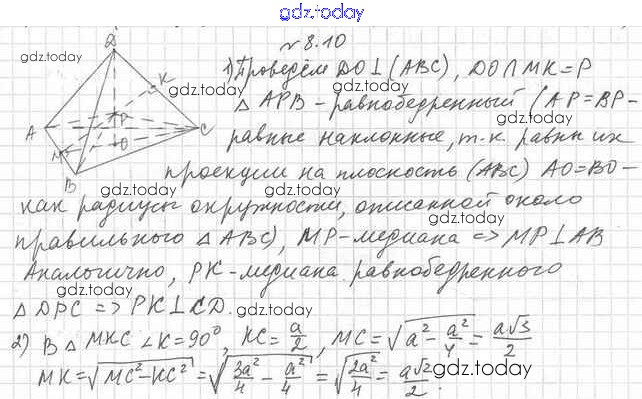 gdz.today
№ 8.10
D
K
P
A
C
M
O
B
1) Проведём DO⊥(ABC), DO∩MK=P
△ APB - равнобедренный (AP=BP-
равные наклонные, т.к. равны их
проекции на плоскость (ABC) AO=BO-
как радиусы окружности, описанной около
правильного △ ABC), MP-медиана => MP⊥AB
Аналогично, PK-медиана равнобедренного
△ DPC => PK⊥CD.
2) В △ MKC ∠K=90°, KC=a/2, MC=√(a²-a²/4)=a√3/2
MK=√(MC²-KC²)=√(3a²/4-a²/4)=√(2a²/4)=a√2/2.
gdz.today
gdz.today
gdz.today
gdz.today
gdz.today
gdz.today
gdz.today
gdz.today
gdz.today
gdz.today